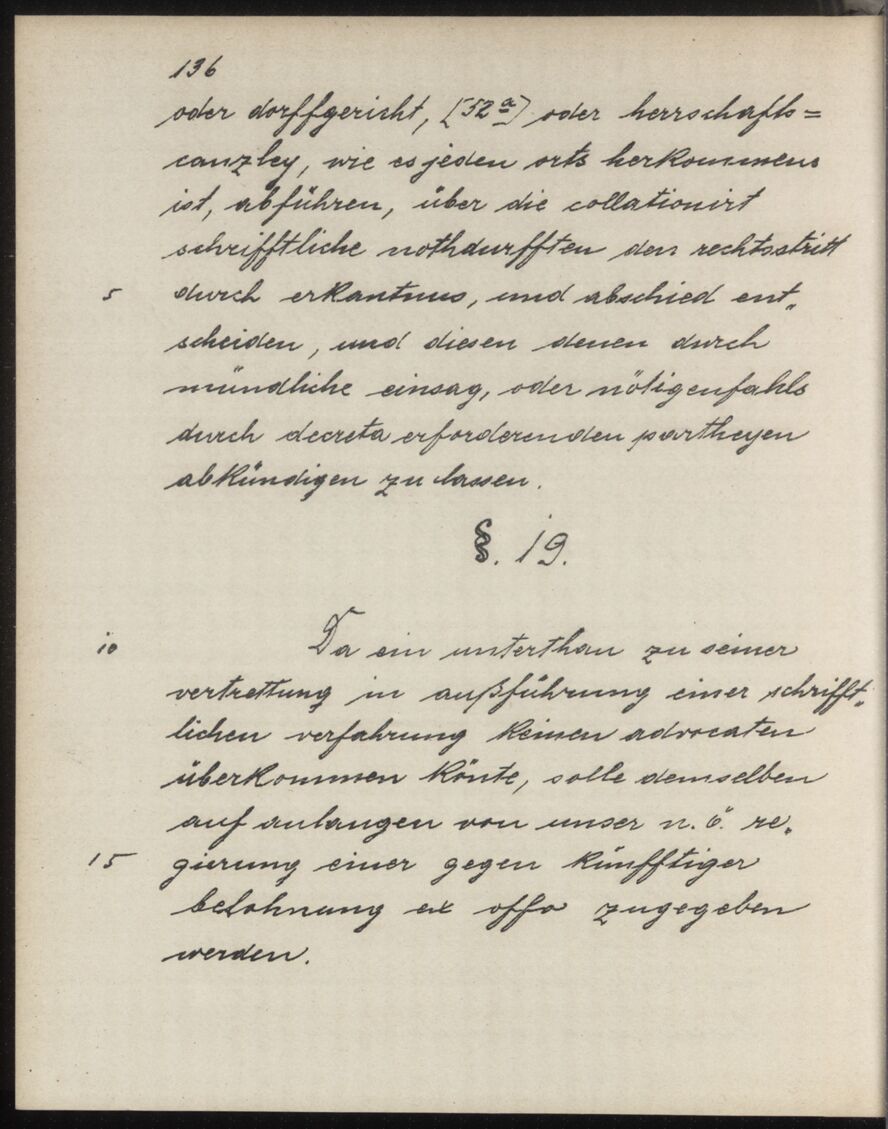 136
oder dorffgericht, [52ª] oder herrschafts=
canzley, wie es jeden orts herkommens
ist, abführen, über die collationirt
schrifftliche nothdurfften den rechtsstritt
5 durch erkantnus, und abschied ent„
scheiden, und diesen denen durch
mündliche einsag, oder nötigenfahls
durch decreta erforderenden partheyen
abkündigen zu lassen.
§. 19.
10 Da ein unterthan zu seiner
vertrettung in außführung einer schrifft„
lichen verfahrung keinen advocaten
überkommen könte, solle demselben
auf anlangen von unser n. ö. re„
15 gierung einer gegen künfftiger
belohnung ex offo zugegeben
werden.